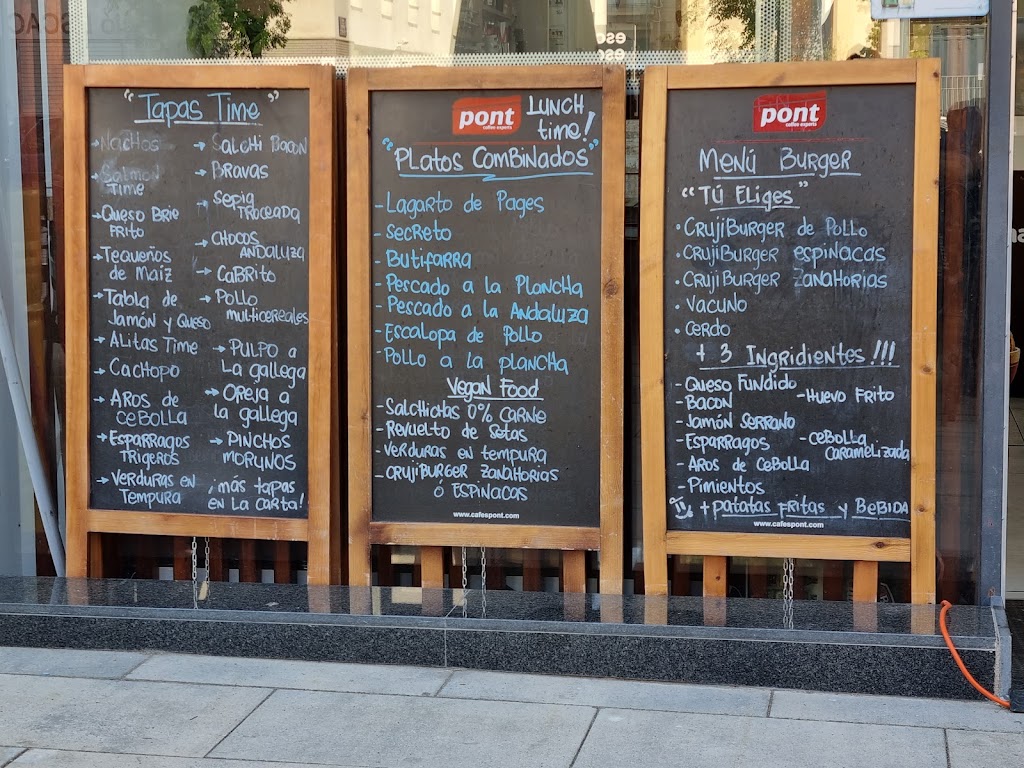 "Tapas Time"
→Nachos
→Salmon
Time
→Queso Brie
Frito
→Tequeños
de Maiz
→Tabla de
Jamón y Queso
→Alitas Time
→Cachopo
→Aros de
Cebolla
→Esparragos
Trigeros
→Verduras en
Tempura
→Salchi Bacon
→Bravas
→Sepia
Troceada
→Chocos
Andaluza
→Cabrito
→Pollo
multicereales
→Pulpo a
La gallega
→Oreja a
la gallega
→Pinchos
Morunos
¡más tapas
en la carta!
pont
coffee experts
Lunch
time!
"Platos Combinados"
-Lagarto de Pages
-Secreto
-Butifarra
-Pescado a la Plancha
-Pescado a la Andaluza
-Escalopa de Pollo
-Pollo a la plancha
Vegan Food
-Salchichas 0% carne
-Revuelto de Setas
-Verduras en tempura
-Crujiburger zanahorias
ó Espinacas
www.cafespont.com
pont
coffee experts
Menú Burger
"Tú Eliges"
•Crujiburger de Pollo
•Crujiburger espinacas
•Crujiburger zanahorias
•Vacuno
•Cerdo
+ 3 Ingridientes!!!
-Queso Fundido
-Bacon
-Huevo Frito
-Jamón Serrano
-Esparragos
-Cebolla
Caramelizada
-Aros de Cebolla
-Pimientos
+ patatas fritas y Bebida
www.cafespont.com